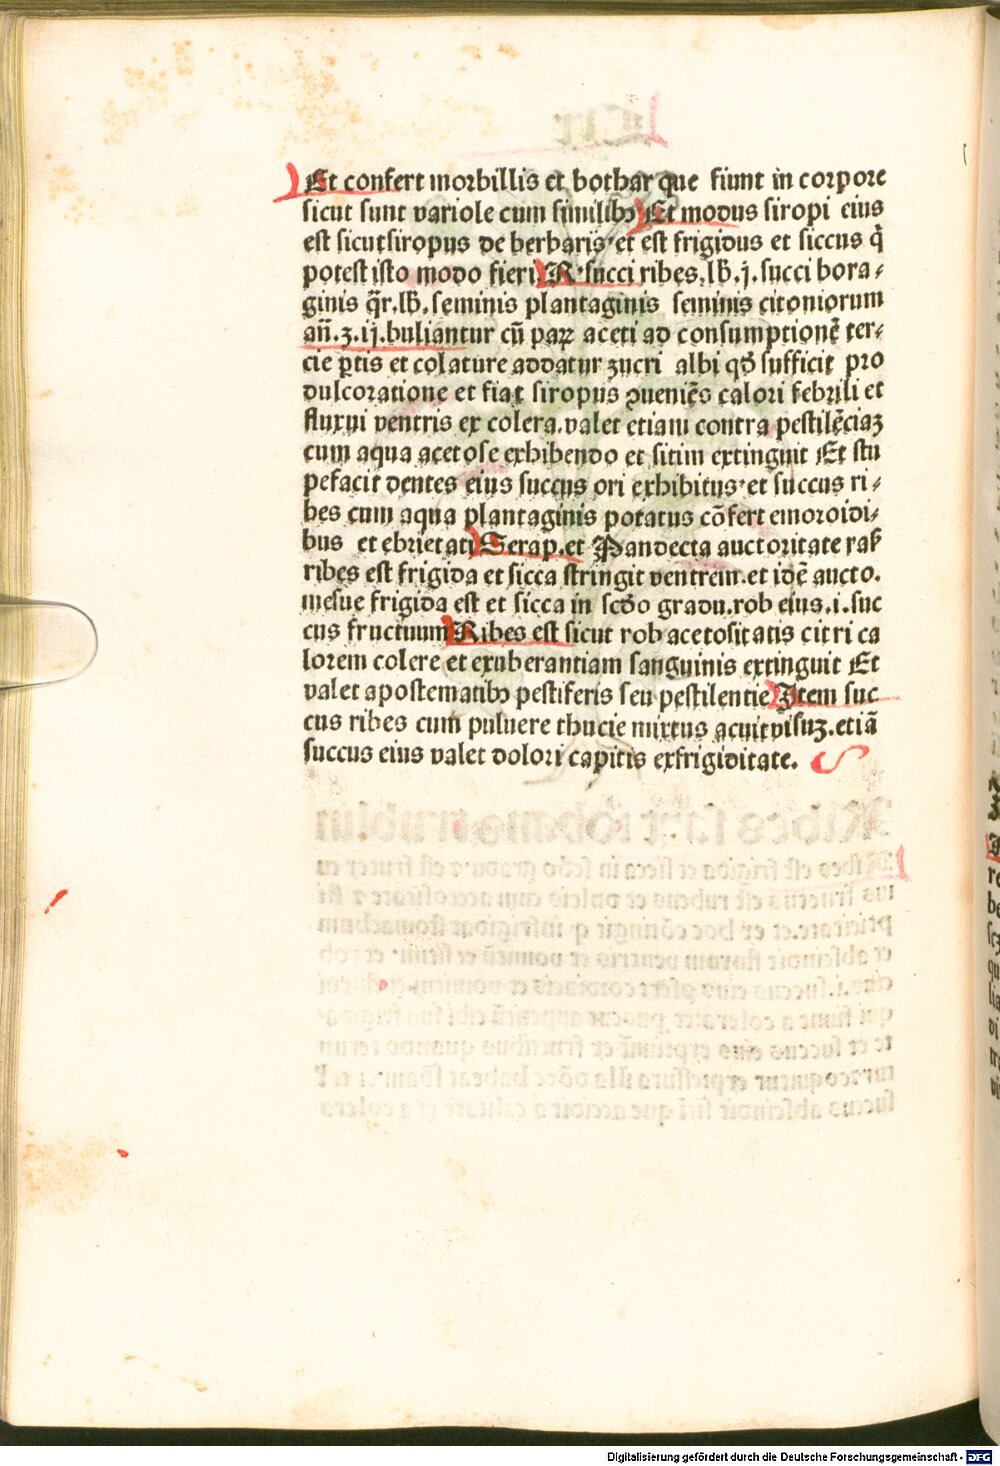 Et confert morbillis et bothar que fiunt in corpore
sicut sunt variole cum similibꝫ Et modus siropi eius
est sicut siropus de berbaris· et est frigidus et siccus q̄
potest isto modo fieri. R· succi ribes. lb̄. j. succi bora⸗
ginis q̄r. lb̄. seminis plantaginis seminis citoniorum
an̄. ʒ. ij. buliantur cū paꝝ aceti ad consumptionē ter⸗
cie p̄tis et colature addatur zucri albi qd̄ sufficit pro
dulcoratione et fiat siropus ꝯueniēs calori febrili et
fluxui ventris ex colera. valet etiam contra pestilēciaꝫ
cum aqua acetose exhibendo et sitim extinguit Et stu
pefacit dentes eius succus ori exhibitus· et succus ri⸗
bes cum aqua plantaginis potatus cōfert emoroidi⸗
bus et ebrietati Serap. et Pandecta auctoritate rasꝭ
ribes est frigida et sicca stringit ventrem. et idē aucto.
mesue frigida est et sicca in scd̄o gradu. rob eius .i. suc
cus fructuum Ribes est sicut rob acetositatis citri ca
lorem colere et exuberantiam sanguinis extinguit Et
valet apostematibꝫ pestiferis seu pestilentie Item suc
cus ribes cum puluere thucie mixtus acuit visuꝫ. etiā
succus eius valet dolori capitis ex frigiditate.
Digitalisierung gefördert durch die Deutsche Forschungsgemeinschaft - DFG